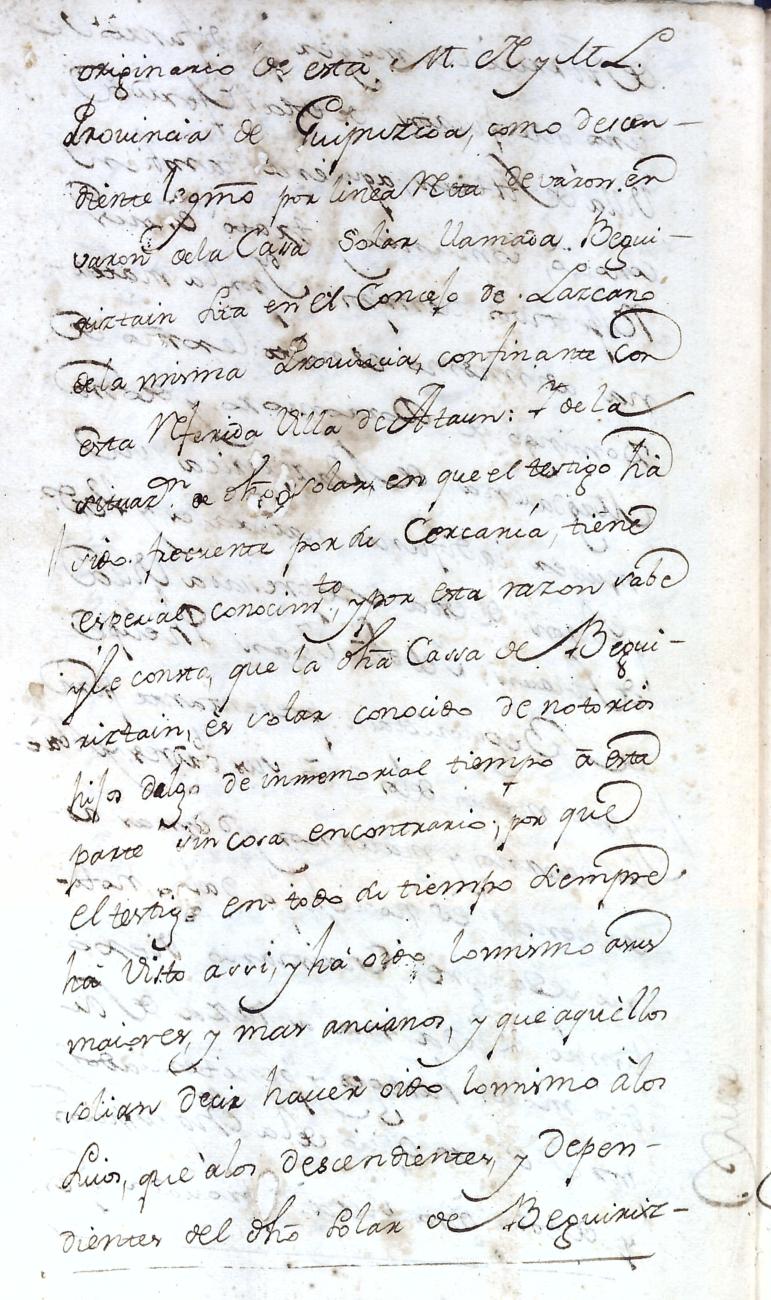 originario de esta M. N. y M. L.
Provincia de Guipuzcoa, como descen-
diente legmo por linea Recta de varon en
varon de la Casa Solar llamada Begui-
riztain sita en el Concejo de Lazcano
de la misma Provincia, confinante con
esta Referida Villa de Ataun: Y de la
situazn de dho solar, en que el testigo hà
sido frecuente por su Cercanía, tiene
especial conocimto, y por esta razon save
y le consta, que la dha Cassa de Begui-
riztain, es solar conocido de notorios
hijos dalgo de inmemorial tiempo à esta
parte sin cosa encontrario, por que
el testigo en todo su tiempo siempre
hà visto assi, y hà oido lo mismo asus
maiores, y mas ancianos, y que aquèllos
solian decir haver oido lo mismo à los
suios, que à los descendientes, y depen-
dientes del dho solar de Beguirizt-